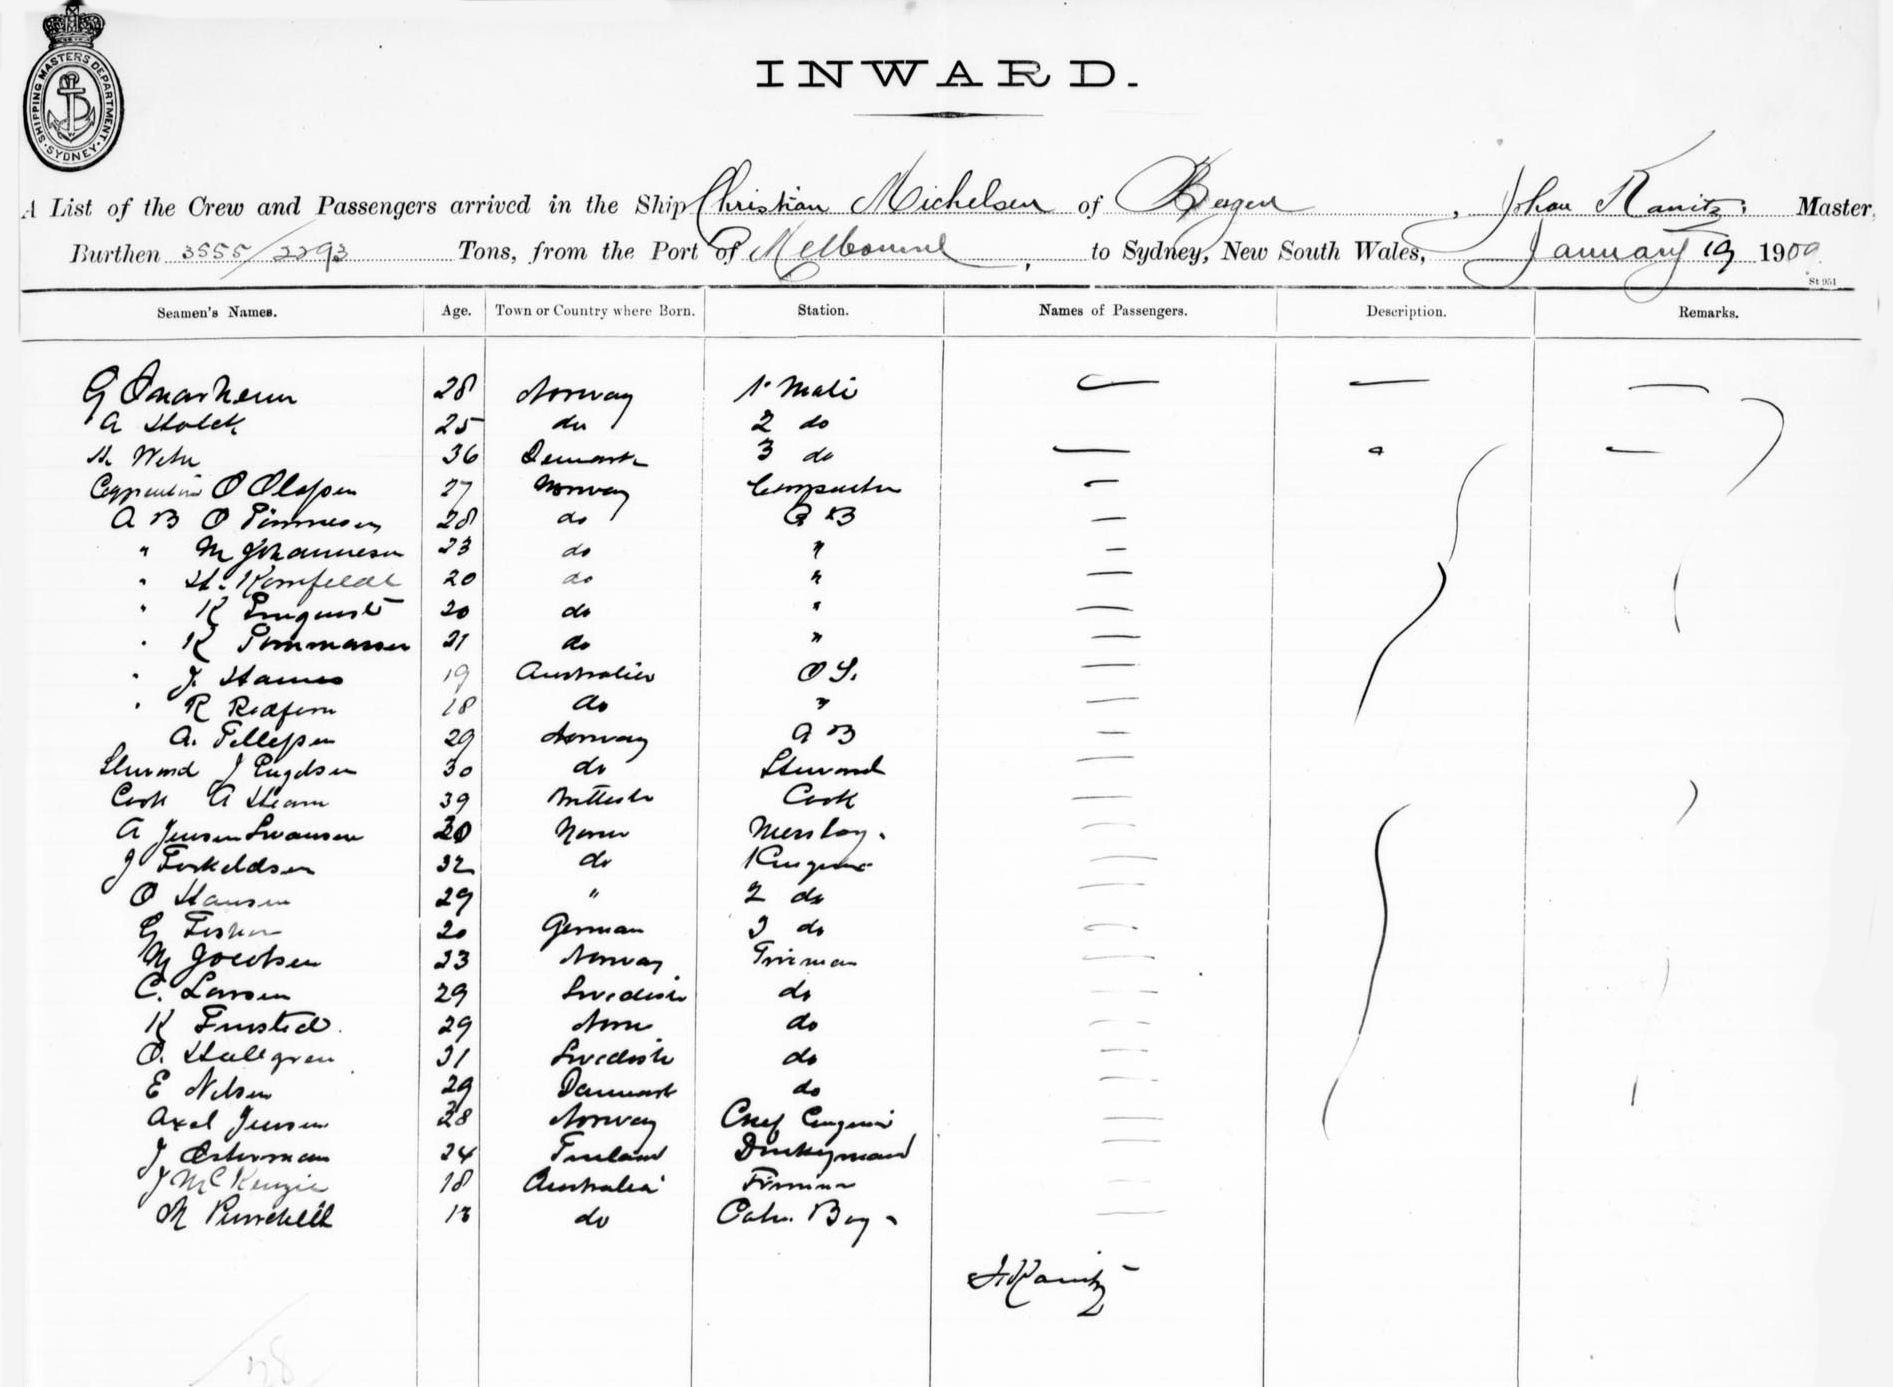 SHIPPING MASTERS DEPARTMENT. SYDNEY.
INWARD.
A List of the Crew and Passengers arrived in the Ship Christian Michelsen of Bergen, Johan Kanitz Master,
Burthen 3555/2293 Tons, from the Port of Melbourne, to Sydney, New South Wales, January 19 1909
St 951
Seamen's Names. Age. Town or Country where Born. Station. Names of Passengers. Description. Remarks.
G 28 Norway 1 Mate
A Holck 25 do 2 do
36 Denmark 3 do
O Olessen 27 Norway Carpenter
A B O 28 do A B
" M Johannesen 23 do "
" H. Kornfeldt 20 do "
" K 20 do "
" K Tommassen 21 do "
" J. 19 Australia O S.
" R Redfern 18 do "
A. Tellessen 29 Norway A B
Steward J Engelsen 30 do Steward
Cook A 39 Cook
A Jensen Swansen 20 Messboy.
J Torkeldsen 32 do
O Hansen 29 " 2 do
G 20 German 3 do
M Jacobsen 23 Norway Fireman
C. Larsen 29 Swedish do
K 29 do
O. Hallgren 31 Swedish do
E Nilsen 29 Danmark do
Axel Jensen 38 Norway Chef Engineer
J Osterman 24 Finland Donkeyman
J McKenzie 18 Australia Fireman
M 18 do Cabin Boy
J. Kanitz
28